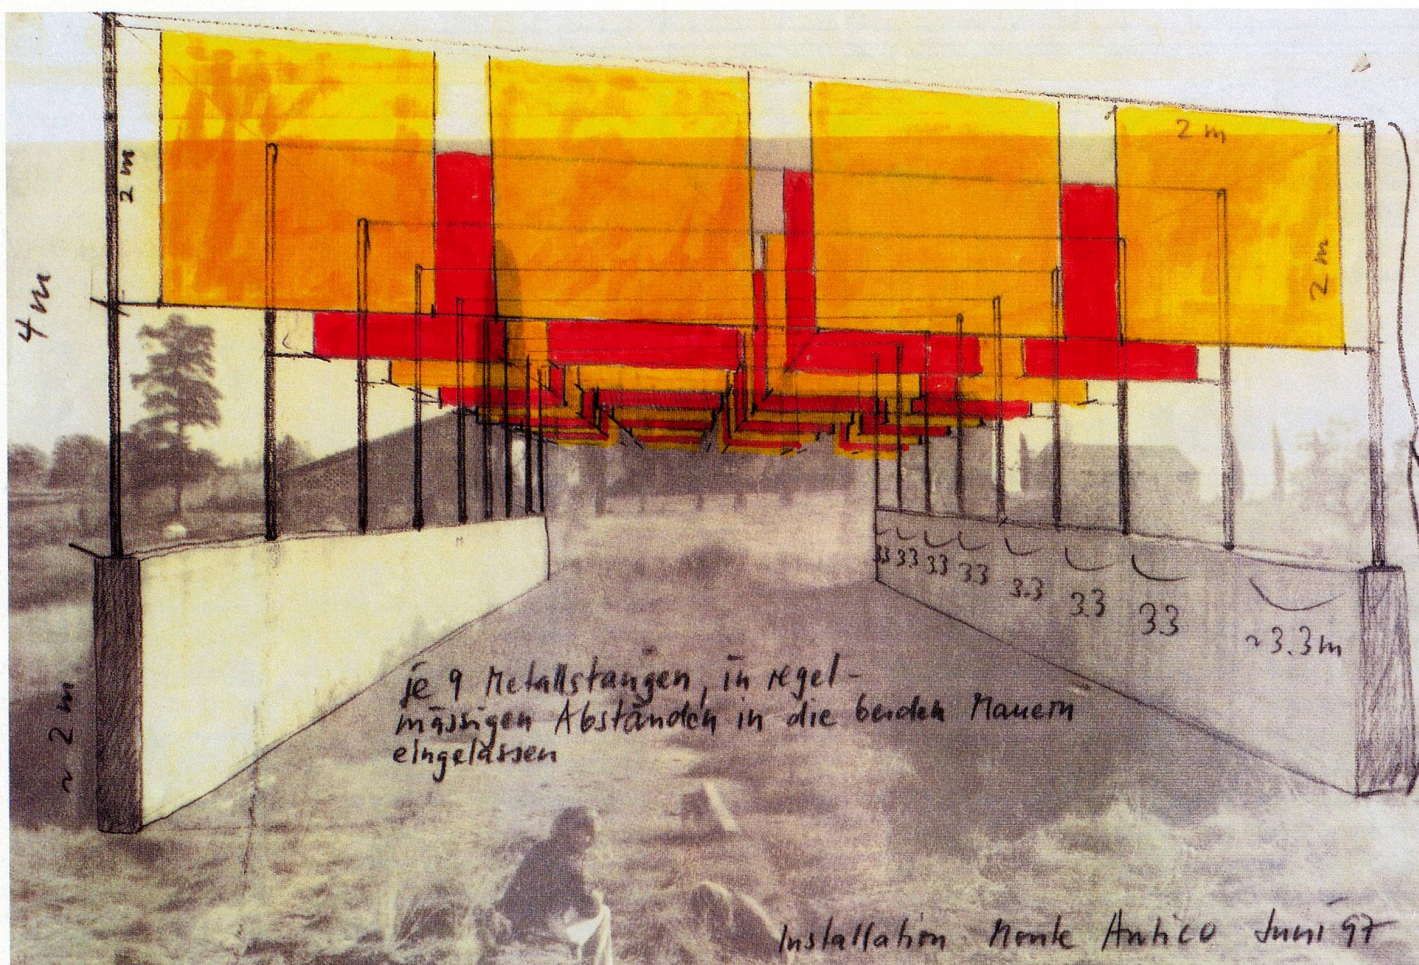 2 m
2 m
2 m
4 m
33
33
33
33
3.3
33
33
~3.3 m
~ 2 m
je 9 Metallstangen, in regel-
mässigen Abständen in die beiden Mauern
eingelassen
Installation Monte Antico Juni 97